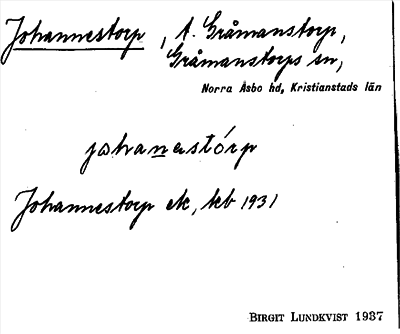 Johannestorp, t. Gråmanstorp,
Gråmanstorps sn,
Norra Åsbo hd, Kristianstads län
johanastórp
Johannestorp ek, kb 1931
BIRGIT LUNDKVIST 1937